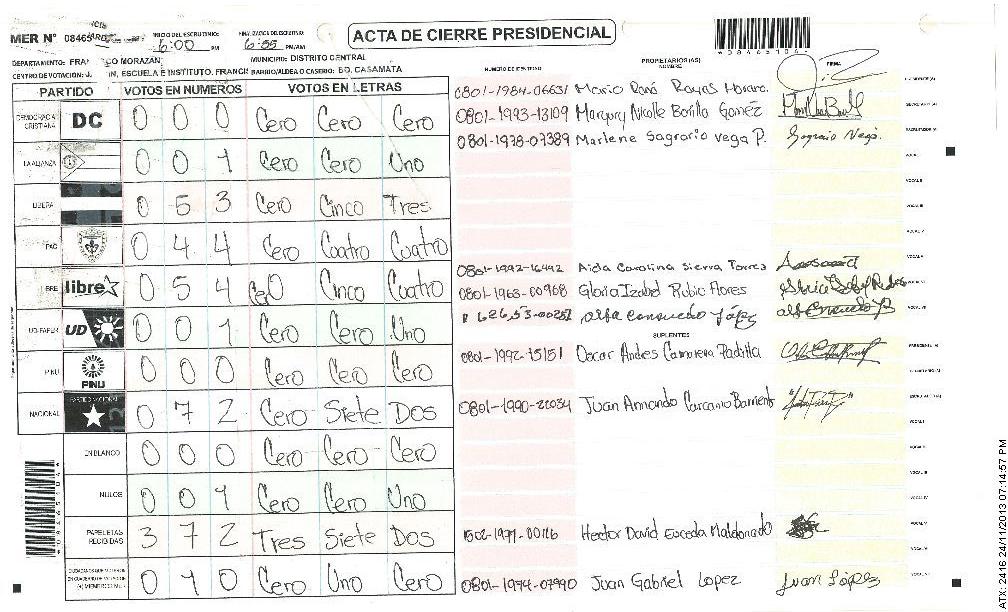 ACTA DE CIERRE PRESIDENCIAL
MER N° 08465
INICIO DEL ESCRUTINIO: 6:00 PM
FINALIZACION DEL ESCRUTINIO: 6:55 PM/AM
DEPARTAMENTO: MORAZAN MUNICIPIO: DISTRITO CENTRAL
CENTRO DE VOTACION: ESCUELA E INSTITUTO, BARRIO/ALDEA O CASERIO: BO. CASAMATA
PARTIDO VOTOS EN NUMEROS VOTOS EN LETRAS
DEMOCRACIA CRISTIANA DC 0 0 0 Cero Cero Cero
LA ALIANZA 0 0 1 Cero Cero Uno
LIBERA 0 5 3 Cero Cinco Tres
PAC 0 4 4 Cero Cuatro Cuatro
BRE libre 0 5 4 Cero Cinco Cuatro
UD-FAPER UD 0 0 1 Cero Cero Uno
PINU PINU 0 0 0 Cero Cero Cero
NACIONAL PARTIDO NACIONAL 0 7 2 Cero Siete Dos
EN BLANCO 0 0 0 Cero Cero Cero
NULOS 0 0 1 Cero Cero Uno
PAPELETAS RECIBIDAS 3 7 2 Tres Siete Dos
0 1 0 Cero Uno Cero
NUMERO DE IDENTIDAD PROPIETARIOS (AS) NOMBRE FIRMA
0801-1984-06631 Mario René Rayas
0801-1993-13109 Margury Nicolle Bonilla Gomez
0801-1978-07389 Marlene Sagrario Vega P. Sagrario Vega
VOCAL I
VOCAL II
VOCAL III
VOCAL IV
0801-1992-16492 Aida Carolina Sierra Torres VOCAL V
0801-1963-00968 Gloria Izabel Rubio Flores
Alfa Consuelo López
SUPLENTES
0801-1992-15151 Oscar Andres Padilla
0801-1990-22034 Juan Armando
VOCAL I
VOCAL II
VOCAL III
VOCAL IV
Hector David Euceda Maldonado VOCAL V
0801-1974-07990 Juan Gabriel Lopez Juan López
24/11/2013 07:14:57 PM